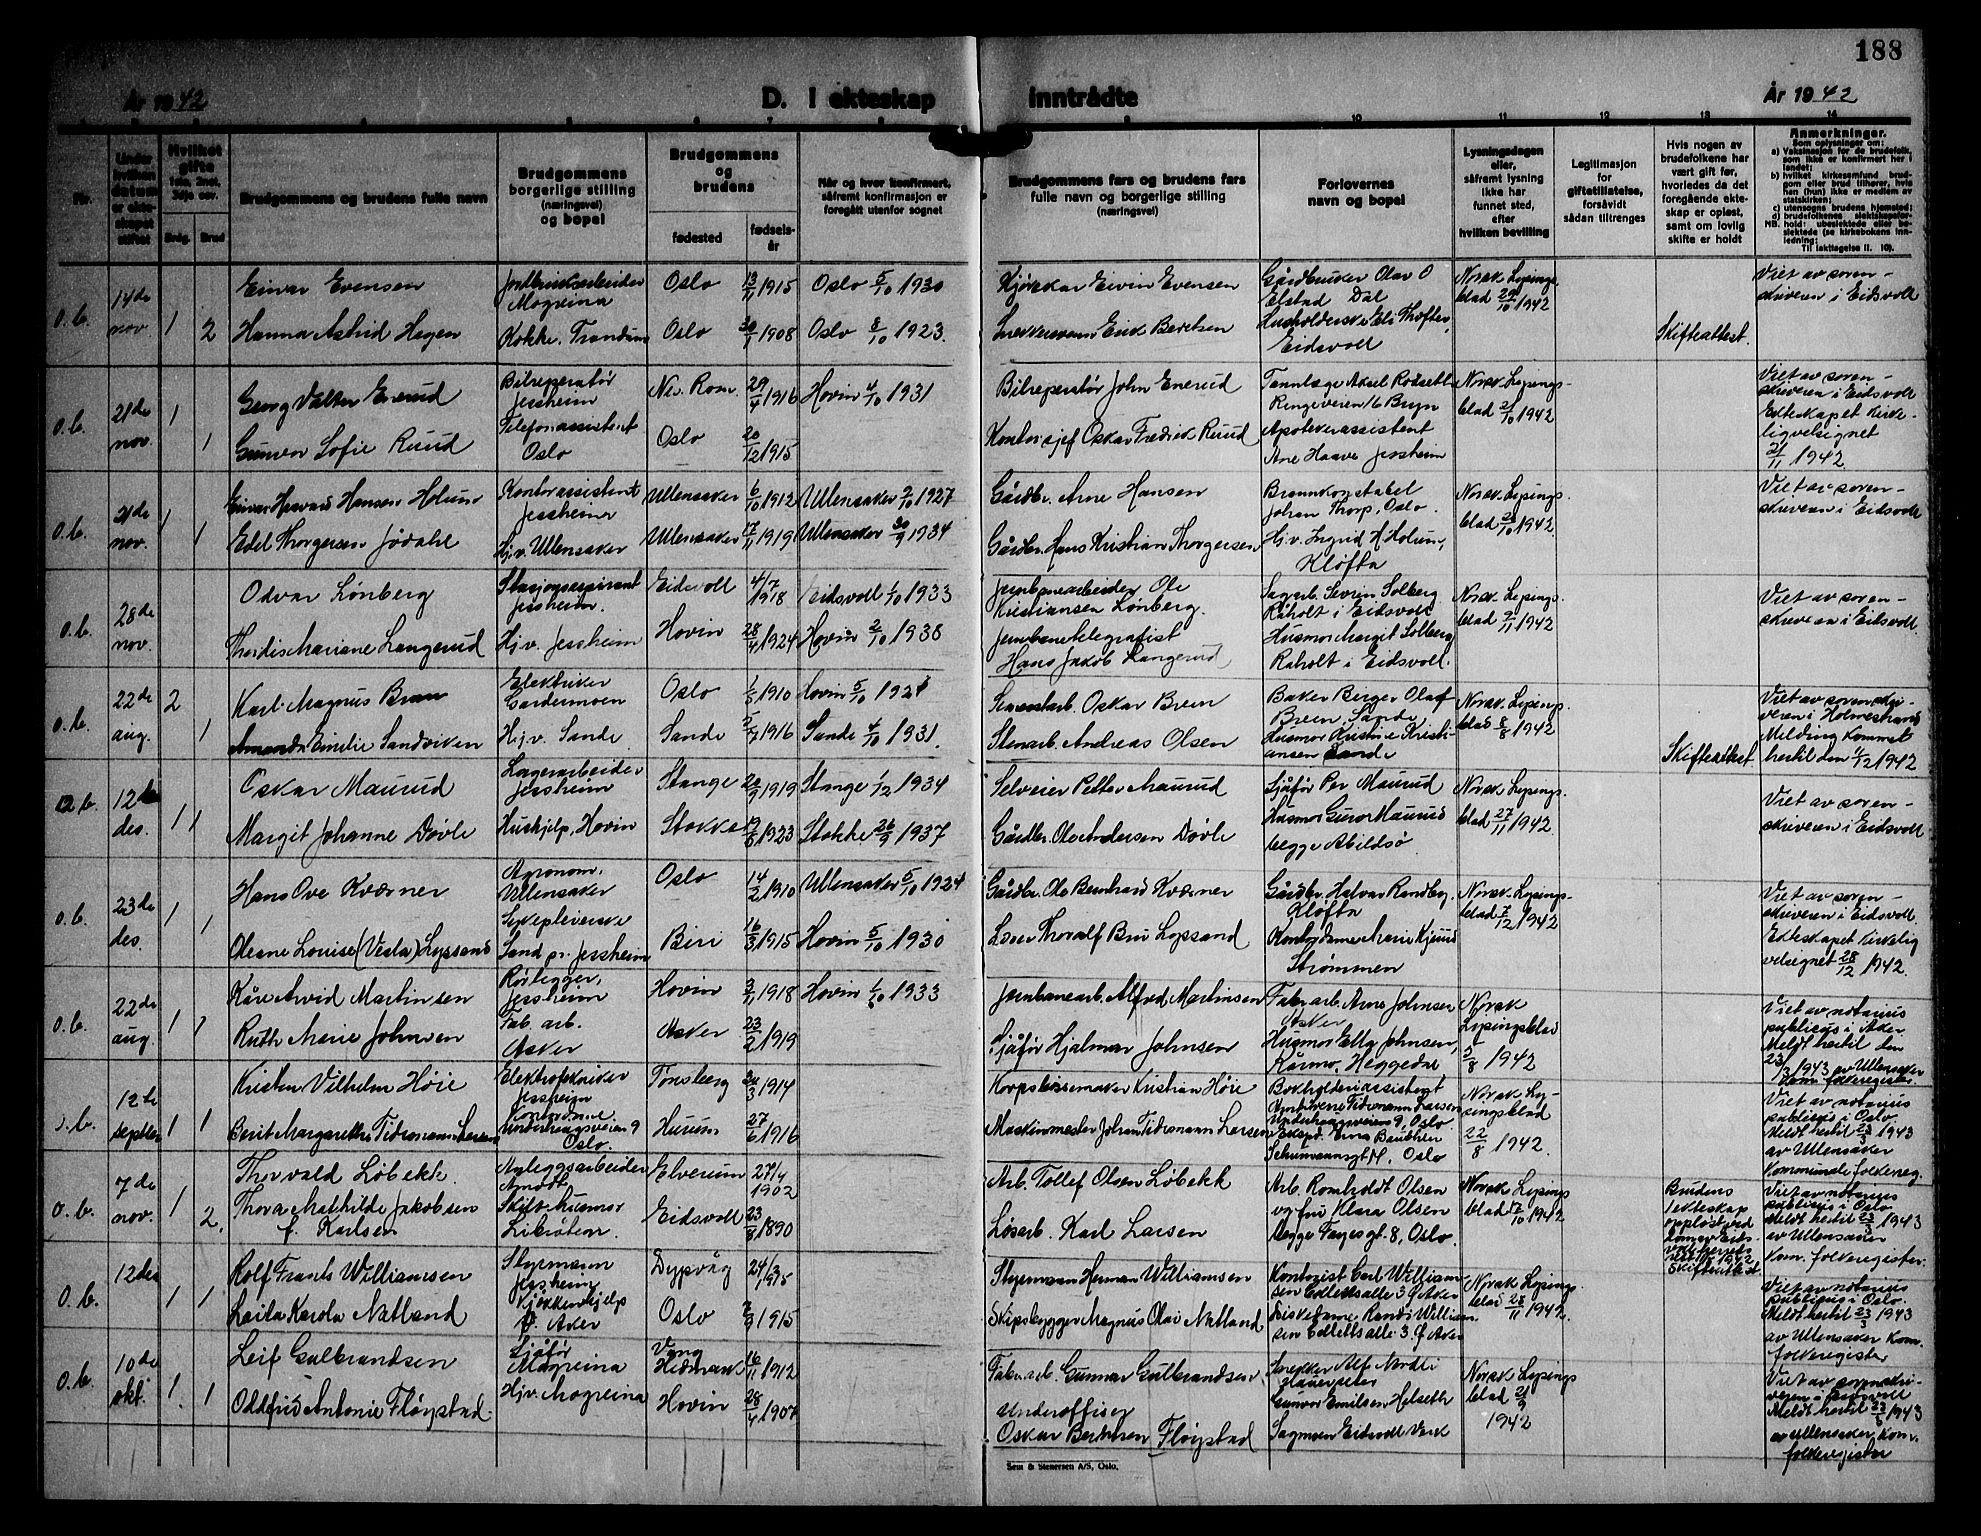 188
År 1942
D. I ekteskap inntrådte
År 1942
1 2 3 4 5 6 7 8 9 10 11 12 13 14
Nr.
Under hvilken datum er ekteskapet stiftet
Hvilket gifte 1ste, 2net, 3dje osv.
Brdg. Brud
Brudgommens og brudens fulle navn
Brudgommens borgerlige stilling (næringsvei) og bopel
Brudgommens og brudens
fødested
fødselsår
Når og hvor konfirmert, såfremt konfirmasjon er foregått utenfor sognet
Brudgommens fars og brudens fars fulle navn og borgerlige stilling (næringsvei)
Forlovernes navn og bopel
Lysningsdagen eller, såfremt lysning ikke har funnet sted, efter hvilken bevilling
Legitimasjon for giftetillatelse, forsåvidt sådan tiltrenges
Hvis nogen av brudefolkene har vært gift før, hvorledes da det foregående ekteskap er opløst, samt om lovlig skifte er holdt
Anmerkninger.
Som oplysninger om:
a) Vaksinasjon for de brudefolk, som ikke er konfirmert her i landet;
b) hvilket kirkesamfund brudgom eller brud tilhører, hvis han (hun) ikke er medlem av statskirken;
c) utensogns brudens hjemsted;
d) brudefolkenes slektskapsforhold: ubeslektede eller beslektede (se kirkebokens innledning;
NB.
Til iakttagelse II. 10).
o.b. 14de nov. 1 2
Einar Evensen
Jordbruksarbeider Mogreina
Oslo 13/11 1915 Oslo 5/10 1930
Kjørekar Eivin Evensen
Gårdbruker Olav O Elstad Dal
Norsk Lysingsblad 29/10 1942
Viet av sorenskriveren i Eidsvoll
Hanna Astrid Hagen
Kokke, Trandum
Oslo 30/1 1908 Oslo 8/10 1923.
Snekkersvenn Erik Berntsen
Husholderske Eli Thofter, Eidsvoll
Skifteattest.
o.b. 21de nov. 1 1
Georg Valter Enerud
Bilreperatør Jessheim
Ne. Rom. 29/4 1916 Hovin 4/10 1931
Bilreperatør John Enerud
Tannlæge Aksel Rodseth Ringeveien 16 Bryn
Norsk Lysingsblad 21/10 1942
Viet av sorenskriveren i Eidsvoll
Ekteskapet kirkeligvelsignet 21/11 1942.
Gunvor Sofie Ruud
Telefonassistent Oslo
Oslo 20/12 1915
Kontorsjef Oskar Fredrik Ruud
Apotekerassistent Arne Haave Jessheim
o.b. 21de nov. 1 1
Einar Hårvard Hansen Holum
Kontorassistent Jessheim
Ullensaker 6/10 1912 Ullensaker 2/10 1927
Gårdbr. Arne Hansen
Brannkonstabel Johan Thorp, Oslo.
Norsk Lysingsblad 23/10 1942.
Viet av sorenskriveren i Eidsvoll
Edel Thorgersen Jødahl
Hj.v. Ullensaker
Ullensaker 17/11 1919 Ullensaker 30/9 1934
Gårdbr. Hans Kristian Thorgersen
Hj.v. Ingrid H. Holum, Kløfta
o.b. 28de nov.
Odvar Lønberg
Stasjonsaspirant Jessheim.
Eidsvoll 4/7 1918 Eidsvoll 1/10 1933
Jernbanearbeider Ole Kristiansen Lønberg.
Sagarb. Severin Solberg Råholt i Eidsvoll
Norsk Lysingsblad 9/11 1942
Viet av sorenskriveren i Eidsvoll.
Thordis Mariane Langerud
Hj.v. Jessheim
Hovin 28/4 1924 Hovin 2/10 1938
Jernbanetelegrafist Hans Jakob Langerud
Husmor Margit Solberg Råholt i Eidsvoll.
o.b. 22de aug. 2 1
Karl Magnus Breen
Elektriker Gardermoen
Oslo 1/8 1910 Hovin 5/10 1924
Sementarb. Oskar Breen
Baker Berger Olaf Breen, Sande
Norsk Lysingsblad 8/8 1942
Viet av sorenskriveren i Holmestrand
Melding kommet hertil den 1/12 1942
Amanda Emilie Sandviken
Hj.v. Sande
Sande 5/7 1916 Sande 4/10 1931.
Stenarb. Andreas Olsen
Husmor Kristiansen Sande
Skifteattest
12 b. 12de des. 1 1
Oskar Maurud
Lagerarbeider Jessheim
Stange 20/9 1919 Stange 1/12 1934
Selveier Petter Maurud
Sjåfør Per Maurud
Norsk Lysingsblad 27/11 1942.
Viet av sorenskriveren i Eidsvoll
Margit Johanne Døvle
Hushjelp, Hovin
Stokke 19/8 1923 Stokke 26/9 1937
Gårdbr. Ole Andersen Døvle
Husmor Guro Maurud begge Abildsø
o.b. 23de des. 1 1
Hans Ove Kværner
Agronom, Ullensaker
Oslo 14/2 1910 Ullensaker 5/10 1924
Gårdbr. Ole Bernhard Kværner
Gårdbr. Halvor Randby, Kløfta
Norsk Lysingsblad 7/12 1942
Viet av sorenskriveren i Eidsvoll.
Ekteskapet kirkelig velsignet 28/12 1942.
Oleane Louise (Vesla) Lyssand
Sykepleierske Sand pr. Jessheim
Biri 16/3 1915 Hovin 5/10 1930
Lærer Thoralf Bru Lyssand
Kontordame Marie Kjuus Strømmen
o.b. 22de aug. 1 1
Kåre Arvid Martinsen
Rørlegger, Jessheim
Hovin 3/11 1918 Hovin 1/10 1933
Jernbanearb. Alfred Martinsen
Fabr.arb. Arne Johnsen Asker
Norsk Lysingsblad 5/8 1942
Viet av notarius publicus i Aker
Meldt hertil den 23/3 1943 av Ullensaker kom. folkeregister.
Ruth Marie Johnsen
Fab. arb. Asker
Asker 23/2 1919
Sjåfør Hjalmar Johnsen
Husmor Elly Johnsen, Heggedal
o.b. 12te septbr 1 1
Kristen Vilhelm Höie
Elektrotekniker Jessheim
Tønsberg 24/3 1914
Korpsbøssemaker Kristian Höie
Bokholderiassistent Tidemann Larsen Underhaugsveien 9, Oslo
Norsk Lysingsblad 22/8 1942.
Viet av notarius publicus i Oslo
Meldt hertil 23/3 1943 av Ullensaker kommunale folkereg.
Berit Margarethe Tidemann Larsen
Kontordame Underhaugsveien 9 Oslo.
Hurum 27/6 1916
Maskinmester Johan Tidemann Larsen
Eksped. Erna Schumannsgt., Oslo
o.b. 7de nov. 1 2.
Thorvald Løbekk.
Anleggsarbeider
Elverum 27/4 1902
Arb. Tollef Olsen Løbekk
Arb. Romholdt Olsen og fru Klara Olsen
Norsk Lysingsblad 17/10 1942
Brudens 1 ekteskap oppløst ved
Skifteattest.
Viet av notarius publicus i Oslo
Meldt hertil 23/3 1943 av Ullensaker kom. folkeregister.
Thora Mathilde Jakobsen f. Karlsen
Skilt husmor
Eidsvoll 23/8 1890
Løsarb. Karl Larsen
begge Fayesgt. 8, Oslo.
o.b. 12 des 1 1
Rolf Frants Williamsen
Styrmann Jessheim
Dypvåg 24/3 1915
Styrmann Herman Williamsen
Kontorist Carl Williamsen 3 Ø Aker
Norsk Lysingsblad 28/11 1942.
Viet av notarius publicus i Oslo.
Meldt hertil 23/3 1943 av Ullensaker kom. folkeregister
Laila Karola Natland
Kjøkkenhjelp Ø. Aker
Oslo 2/3 1915
Skipsbygger Magnus Olai Natland
Diskedame Randi Williamsen 3. Ø Aker
o.b. 10de okt. 1. 1
Leif Gulbrandsen
Sjåfør Mogreina
Vang Hedmark 16/11 1912
Fabr.arb. Gunnar Gulbrandsen
Snekker Alf Nordli
Norsk Lysingsblad 21/9 1942
Viet av sorenskriveren i Eidsvoll
Meldt hertil 23/3 1943 av Ullensaker kom. folkeregister
Oddfrid Antonie Fløystad
Hjv. Mogreina
Hovin 28/4 1907
Underoffiser Oskar Berntsen Fløystad
Gunvor Emilsen Helseth Sagmoen Eidsvoll Verk
Sem & Stenersen A/S, Oslo.